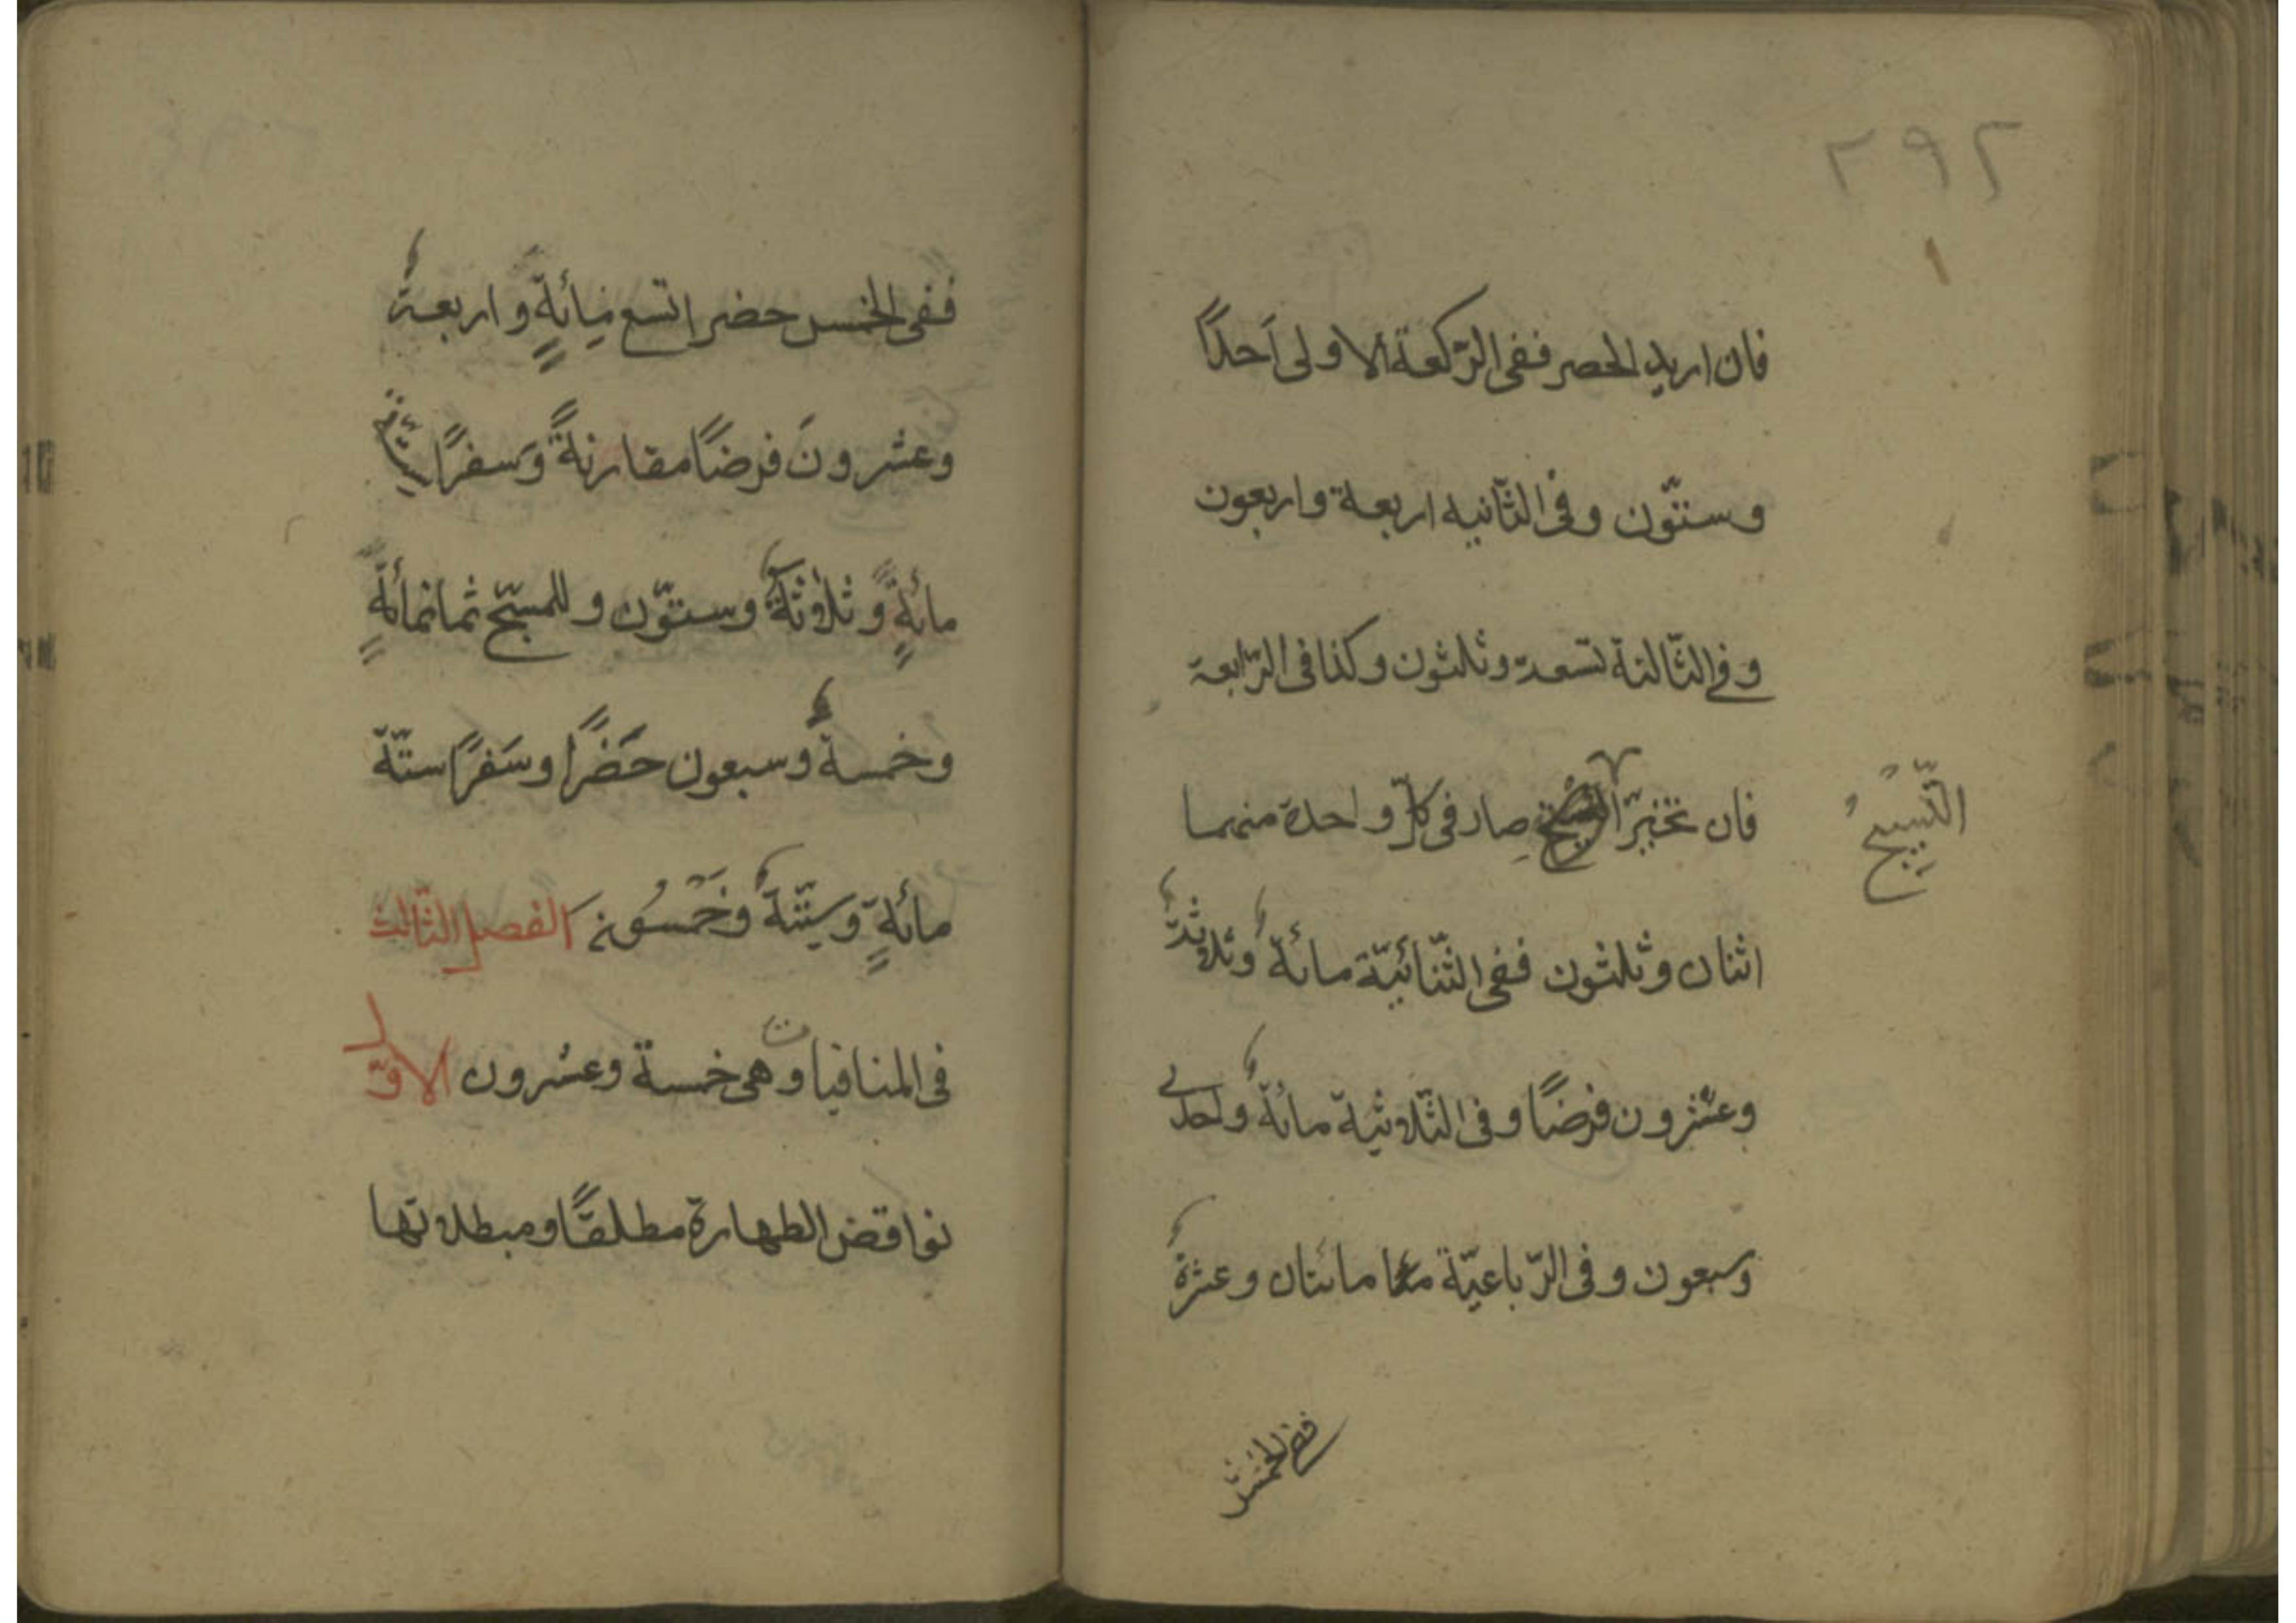 ٢٩٢
فان اريد الحصر ففى الرّكعة الاولى اَحدًا
وستّون وفى الثّانيه اربعة واربعون
وفى الثّالثة تسعة وثلثون وكذا فى الرّابعة
فان تخيّر التسبيح صار فى كلّ واحدة منهما
التّسبيحُ
اثنان وثلثون ففى الثّنائيّة مائة وثلاثةٌ
وعشرون فرضًا وفى الثّلاثية مائةٌ واحدى
وسبعون وفى الرّباعيّة مائتان وعشرة
ففى الخمس
ففى الخمس حضرا تسع مِائةٍ واربعةٌ
وعشرونَ فرضًا مقارنةً وَسفرًا ستّ
مائةٍ وثلاثةٌ وستّون وللمسبّح ثمانمائةٍ
وخمسةٌ وسبعون حَضَرًا وسَفرًا ستّة
مائةٍ وسِتّةٌ وخَمْسُونَ الفصل الثّالث
فى المنافيات وهى خمسة وعشرون الاوّل
نواقض الطهارة مطلقًا ومبطلاتها